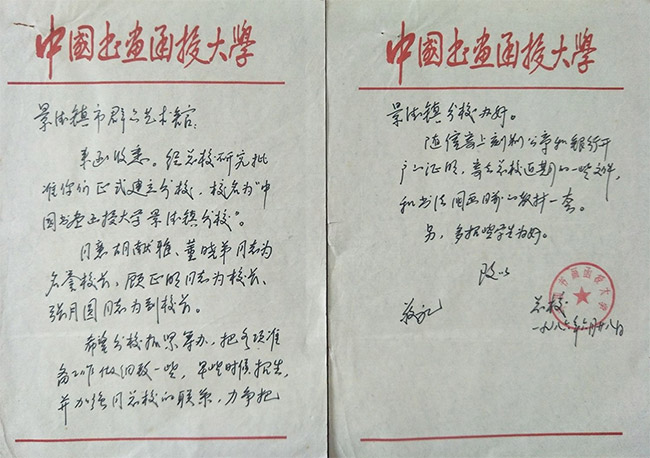 中國书画函授大學
景德镇市群众艺术馆：
来函收悉。经总校研究批
准你们正式建立分校，校名为“中
国书画函授大学景德镇分校”。
同意胡献雅、董晓弟同志为
名誉校长，顾正明同志为校长，
张月圆同志为副校长。
希望分校抓紧筹办，把各项准
备工作做细致一些，早些时候招生，
并加强同总校的联系，力争把
中國书画函授大學
景德镇分校办好。
随信寄上刻制公章和银行开
户证明，寄去总校近期的一些文件，
和书法国画目前的教材一套。
另，多招些学生为好。
致以
敬礼
总校
书画函授大学
一九八六年六月廿八日